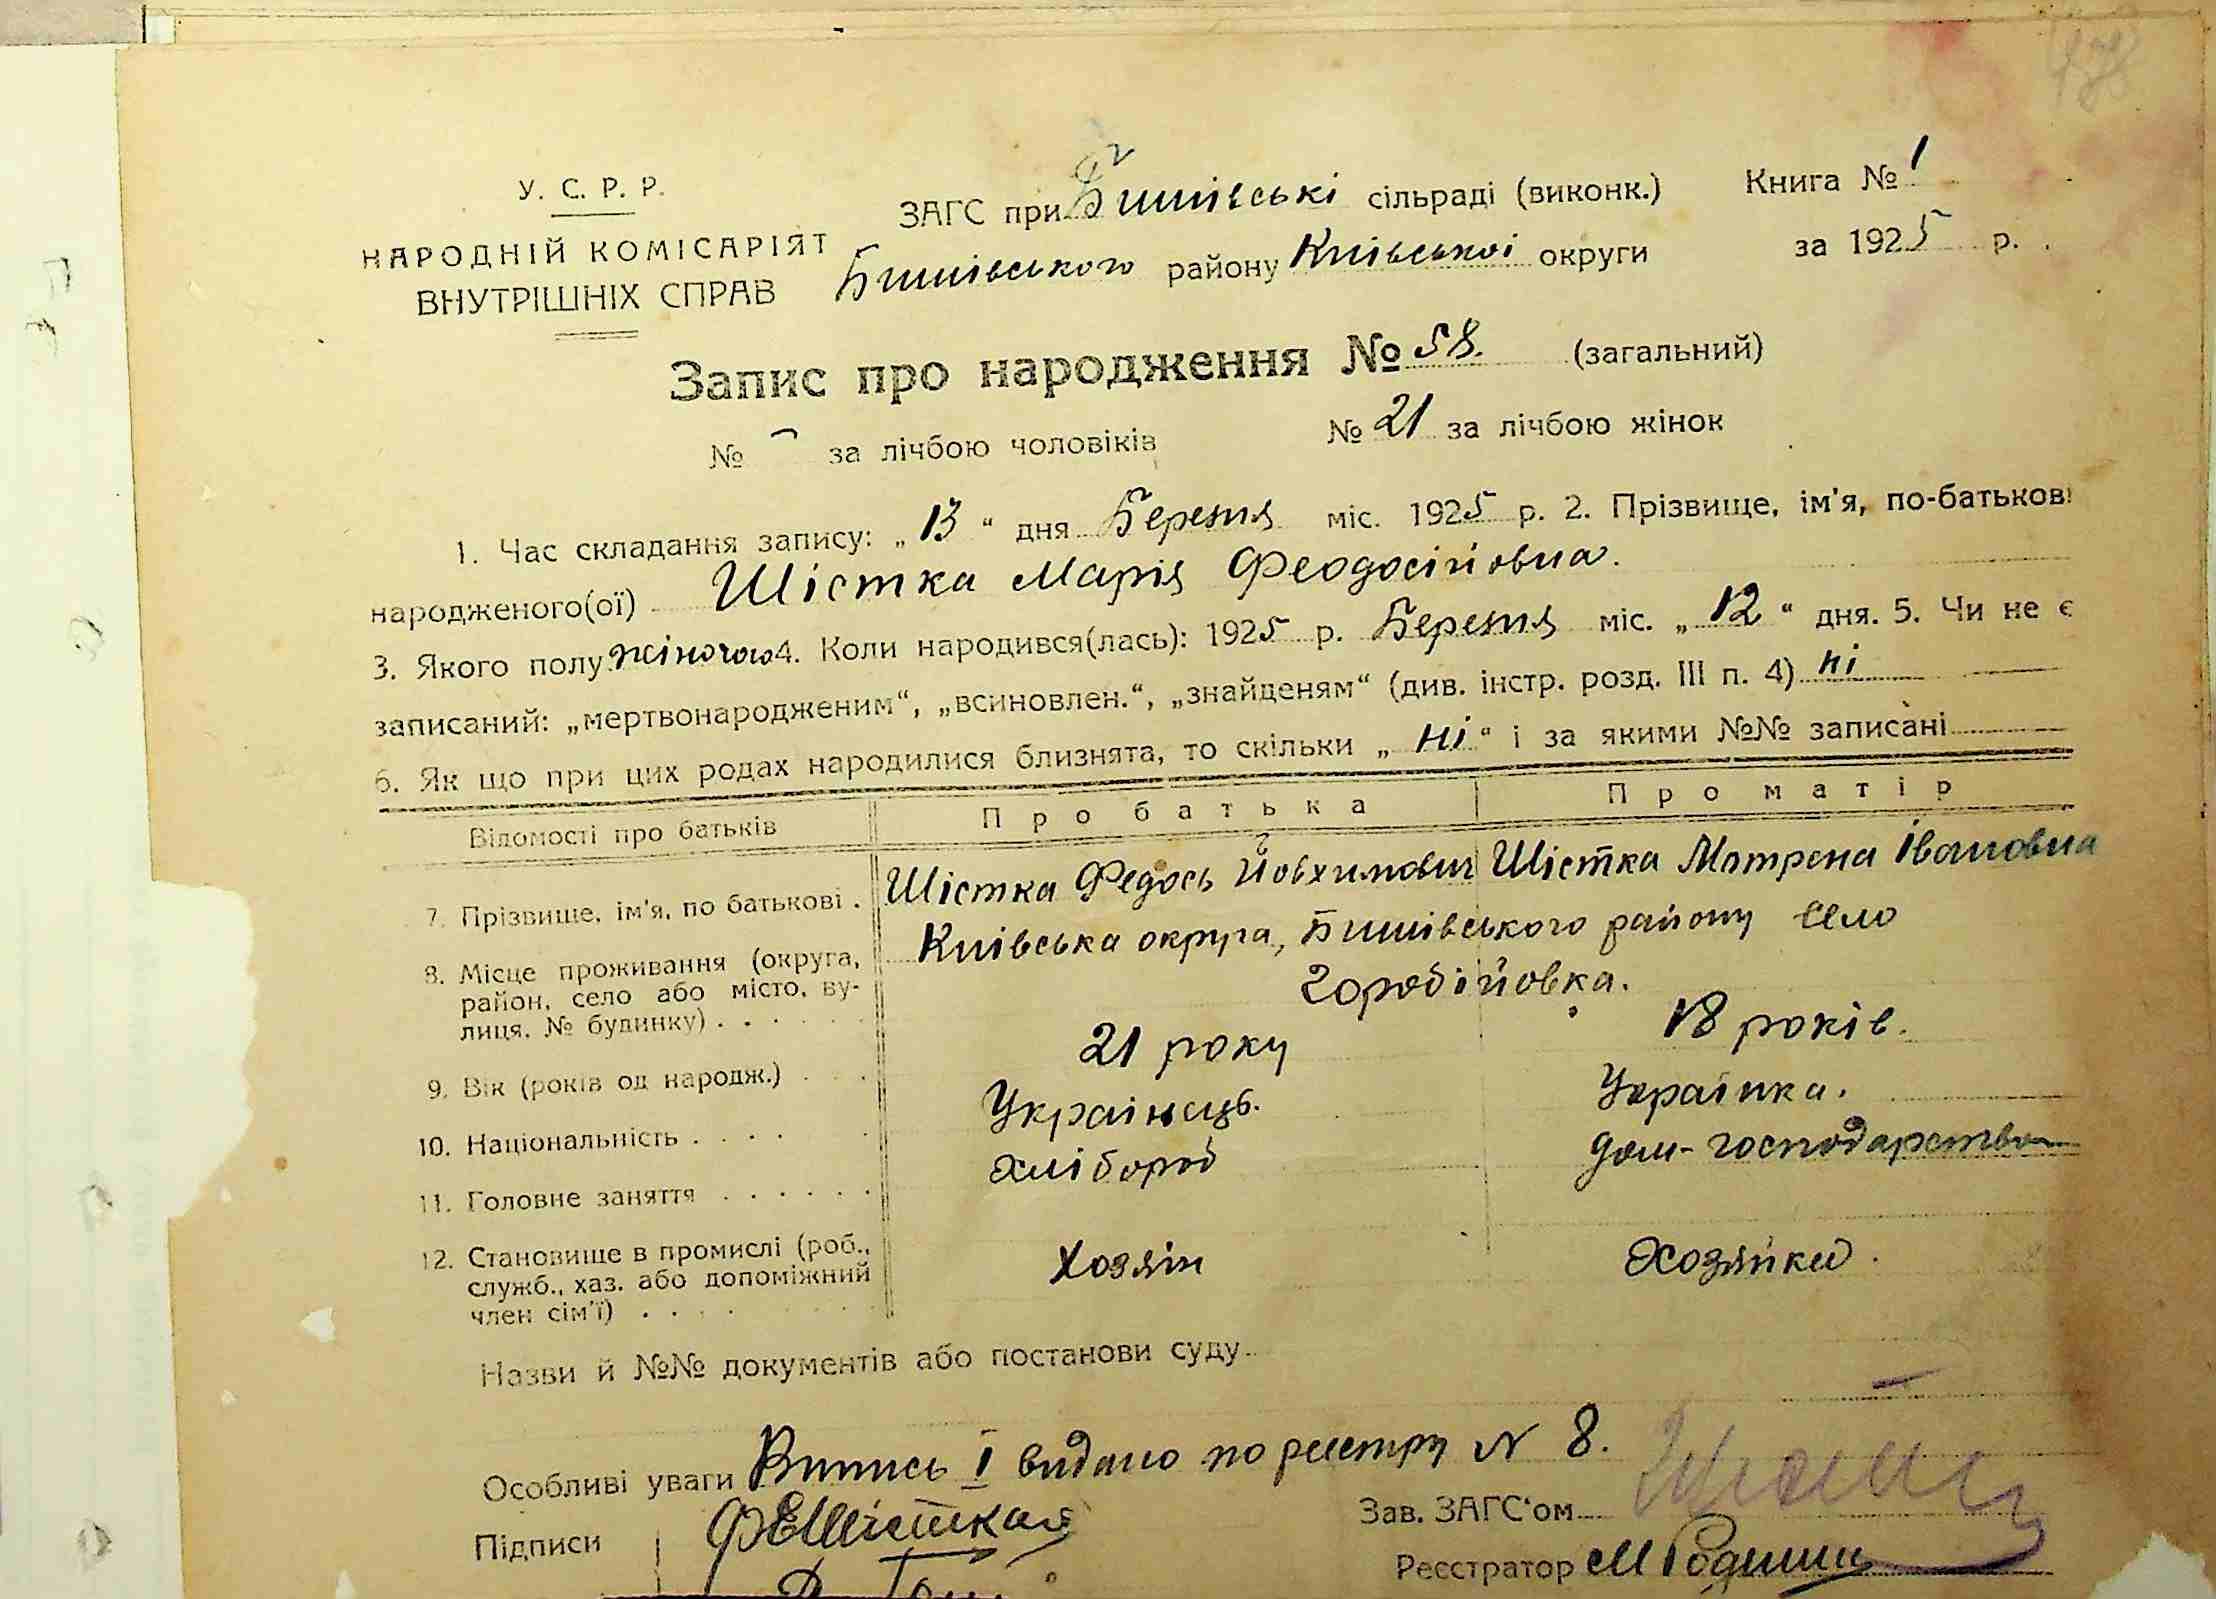 У. С. Р. Р.
НАРОДНІЙ КОМІСАРІЯТ
ВНУТРІШНІХ СПРАВ
ЗАГС при Бишівські сільраді (виконк.)
Бишівського району Київської округи
Книга № 1
за 1925 р.
Запис про народження № 58. (загальний)
№ — за лічбою чоловіків № 21 за лічбою жінок
1. Час складання запису: „13“ дня Березня міс. 1925 р. 2. Прізвище, ім'я, по-батькові
народженого(ої) Шістка Марія Феодосійовна.
3. Якого полу жіночого 4. Коли народився(лась): 1925 р. Березня міс. „12“ дня. 5. Чи не є
записаний: „мертвонародженим“, „всиновлен.“, „знайденям“ (див. інстр. розд. III п. 4) ні
6. Як що при цих родах народилися близнята, то скільки „ні“ і за якими №№ записані
Відомості про батьків Про батька Про матір
7. Прізвище, ім'я, по батькові . Шістка Федось Йовхимович Шістка Мотрена Івановна
8. Місце проживання (округа, район, село або місто, вулиця, № будинку) . . . . . . Київська округа, Бишівського району село
Горобійовка.
9. Вік (років од народж.) . . . 21 року 18 років.
10. Національність . . . . . Українець. Українка.
11. Головне заняття . . . . . . Хлібороб дом-господарство
12. Становище в промислі (роб., служб., хаз. або допоміжний член сім'ї) . . . . . . Хозяін Хозяйка.
Назви й №№ документів або постанови суду
Особливі уваги Випись I видано по реєстру N 8.
Підписи ФЕШісткая
Зав. ЗАГС'ом
Реєстратор